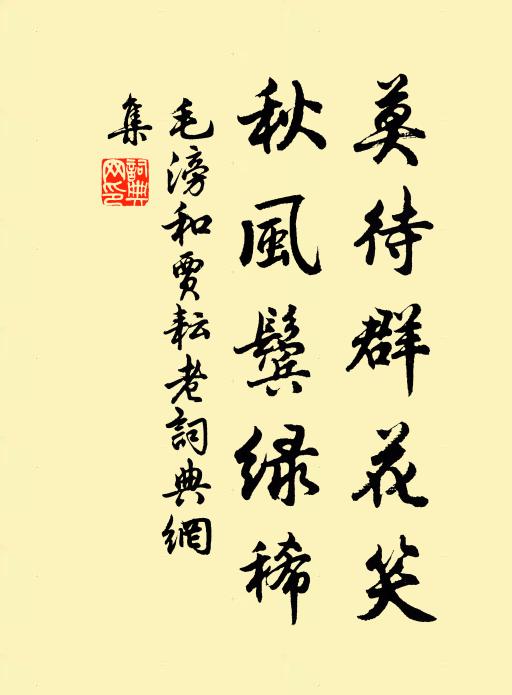 莫待群花笑
秋風鬢緑稀
毛滂和賈耘老詞典網
集
詞典網印